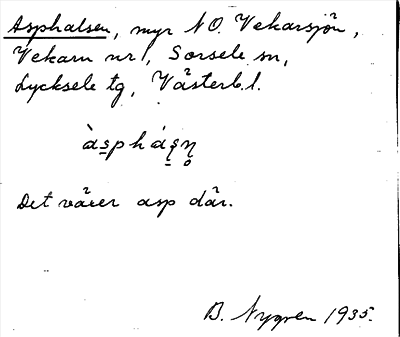 Asphalsen, myr NO. Vekarsjön,
Vekarn nr 1, Sorsele sn,
Lycksele tg, Västerb. l.
Det växer asp där.
B. Nygren 1935.